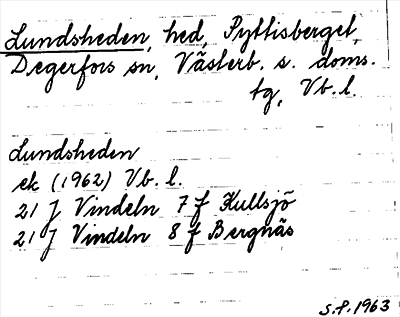 Lundsheden, hed, Pyttisberget,
Degerfors sn, Västerb. s. doms.
tg, Vb. l.
Lundsheden
ek (1962) Vb. l.
21 J Vindeln 7 f Kullsjö
21 J Vindeln 8 f Bergnäs
S.P. 1963